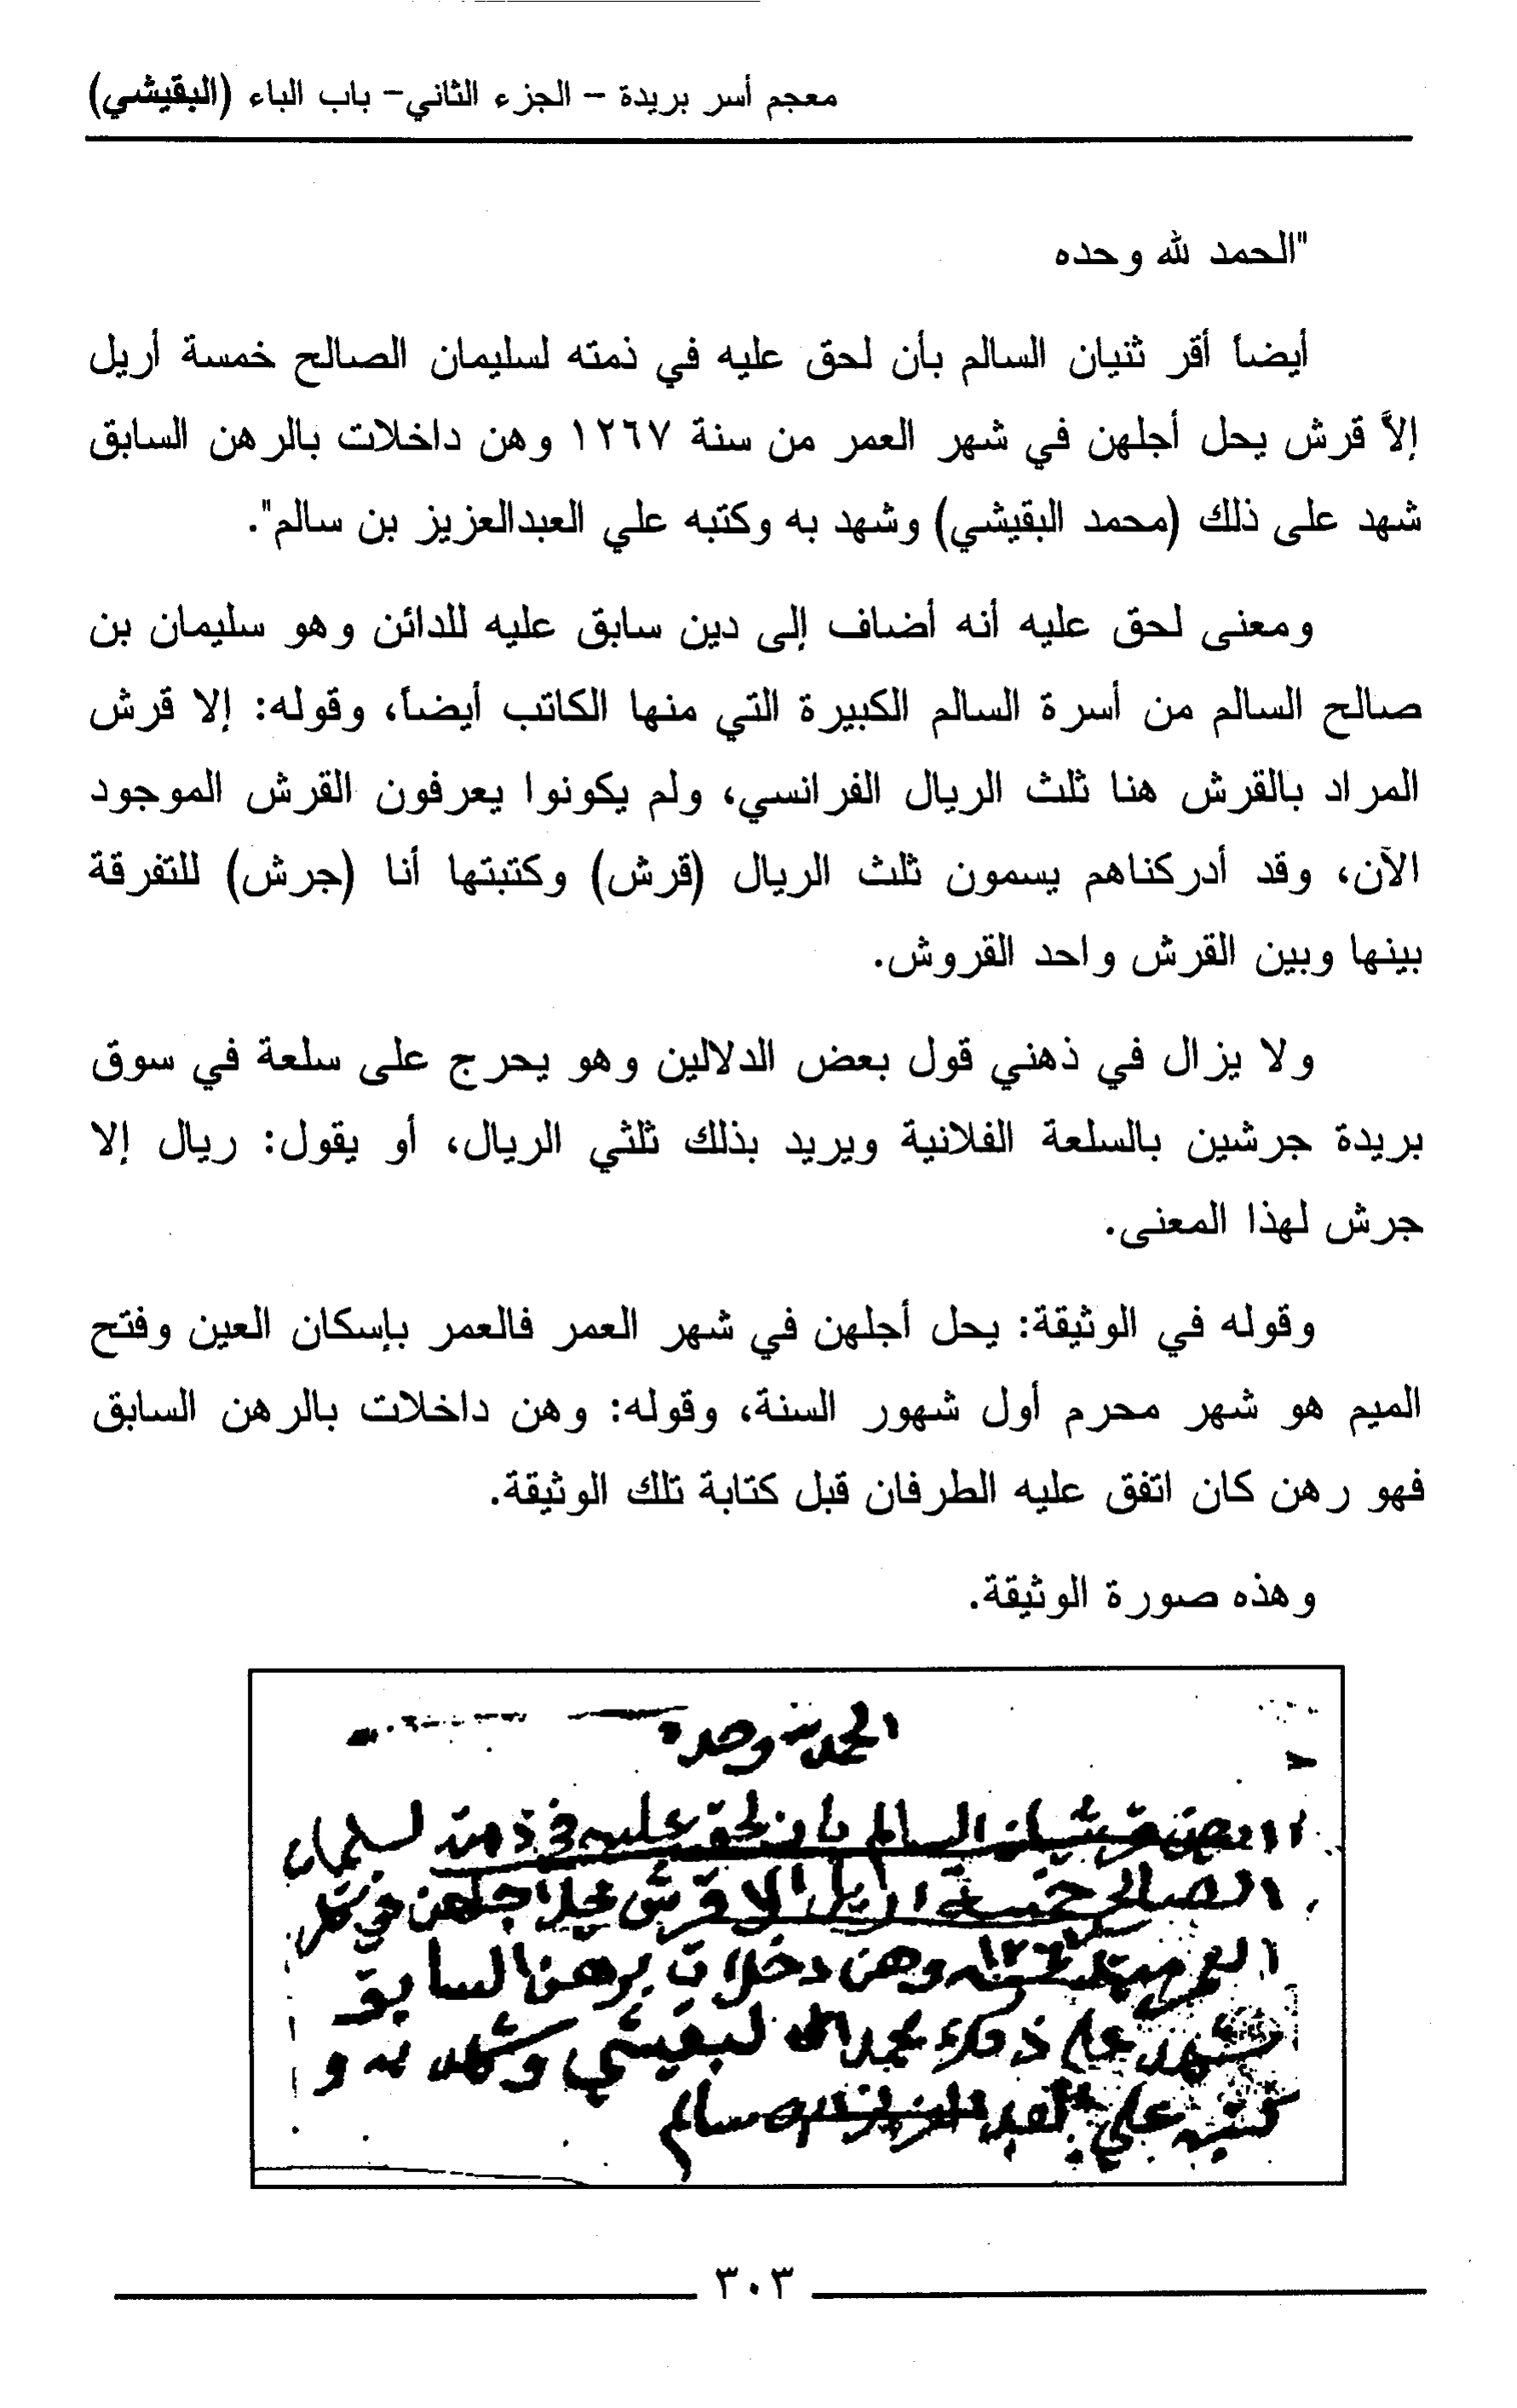 معجم أسر بريدة – الجزء الثاني– باب الباء (البقيشي)
"الحمد لله وحده
أيضاً أقر ثنيان السالم بأن لحق عليه في ذمته لسليمان الصالح خمسة أريل
إلاَّ قرش يحل أجلهن في شهر العمر من سنة ١٢٦٧ وهن داخلات بالرهن السابق
شهد على ذلك (محمد البقيشي) وشهد به وكتبه علي العبدالعزيز بن سالم".
ومعنى لحق عليه أنه أضاف إلى دين سابق عليه للدائن وهو سليمان بن
صالح السالم من أسرة السالم الكبيرة التي منها الكاتب أيضاً، وقوله: إلا قرش
المراد بالقرش هنا ثلث الريال الفرانسي، ولم يكونوا يعرفون القرش الموجود
الآن، وقد أدركناهم يسمون ثلث الريال (قرش) وكتبتها أنا (جرش) للتفرقة
بينها وبين القرش واحد القروش.
ولا يزال في ذهني قول بعض الدلالين وهو يحرج على سلعة في سوق
بريدة جرشين بالسلعة الفلانية ويريد بذلك ثلثي الريال، أو يقول: ريال إلا
جرش لهذا المعنى.
وقوله في الوثيقة: يحل أجلهن في شهر العمر فالعمر بإسكان العين وفتح
الميم هو شهر محرم أول شهور السنة، وقوله: وهن داخلات بالرهن السابق
فهو رهن كان اتفق عليه الطرفان قبل كتابة تلك الوثيقة.
وهذه صورة الوثيقة.
الحمد لله وحده
ثنيان السالم بان لحق عليه في ذمته لسليمان
الصالح خمسة اريل الا قرش يحل اجلهن في
١٢٦٧ وهن دخلات برهن السابق
شهد على ذلك محمد البقيشي وشهد به و
كتبه علي العبد العزيز بن سالم
٣٠٣